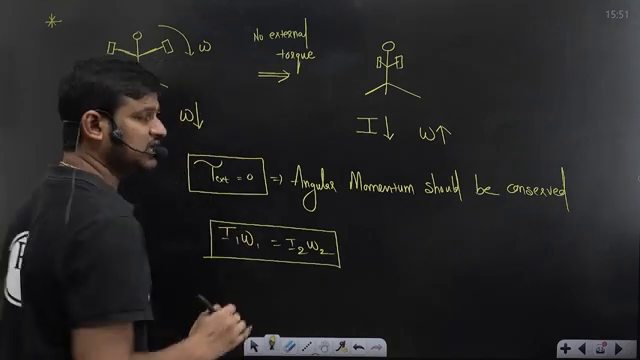 15:51
*
ω
No external
torque
⇒
ω↓
I↓ ω↑
τext = 0 ⇒ Angular Momentum should be conserved
I₁ω₁ = I₂ω₂